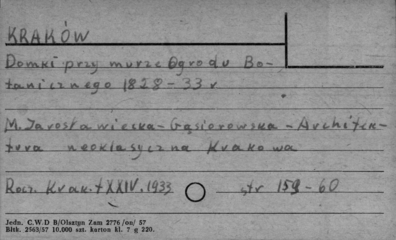 KRAKÓW
Domki przy murze Ogrodu Bo-
tanicznego 1828-33 r
M. Jarosławiecka-Gąsiorowska - Architek-
tura neoklasyczna Krakowa
Rocz. Krak. t XXIV. 1933 str 159-60
Jedn. C.W.D B/Olsztyn Zam 2776/on/ 57
Bltk. 2563/57 10.000 szt. karton kl. 7 g 220.